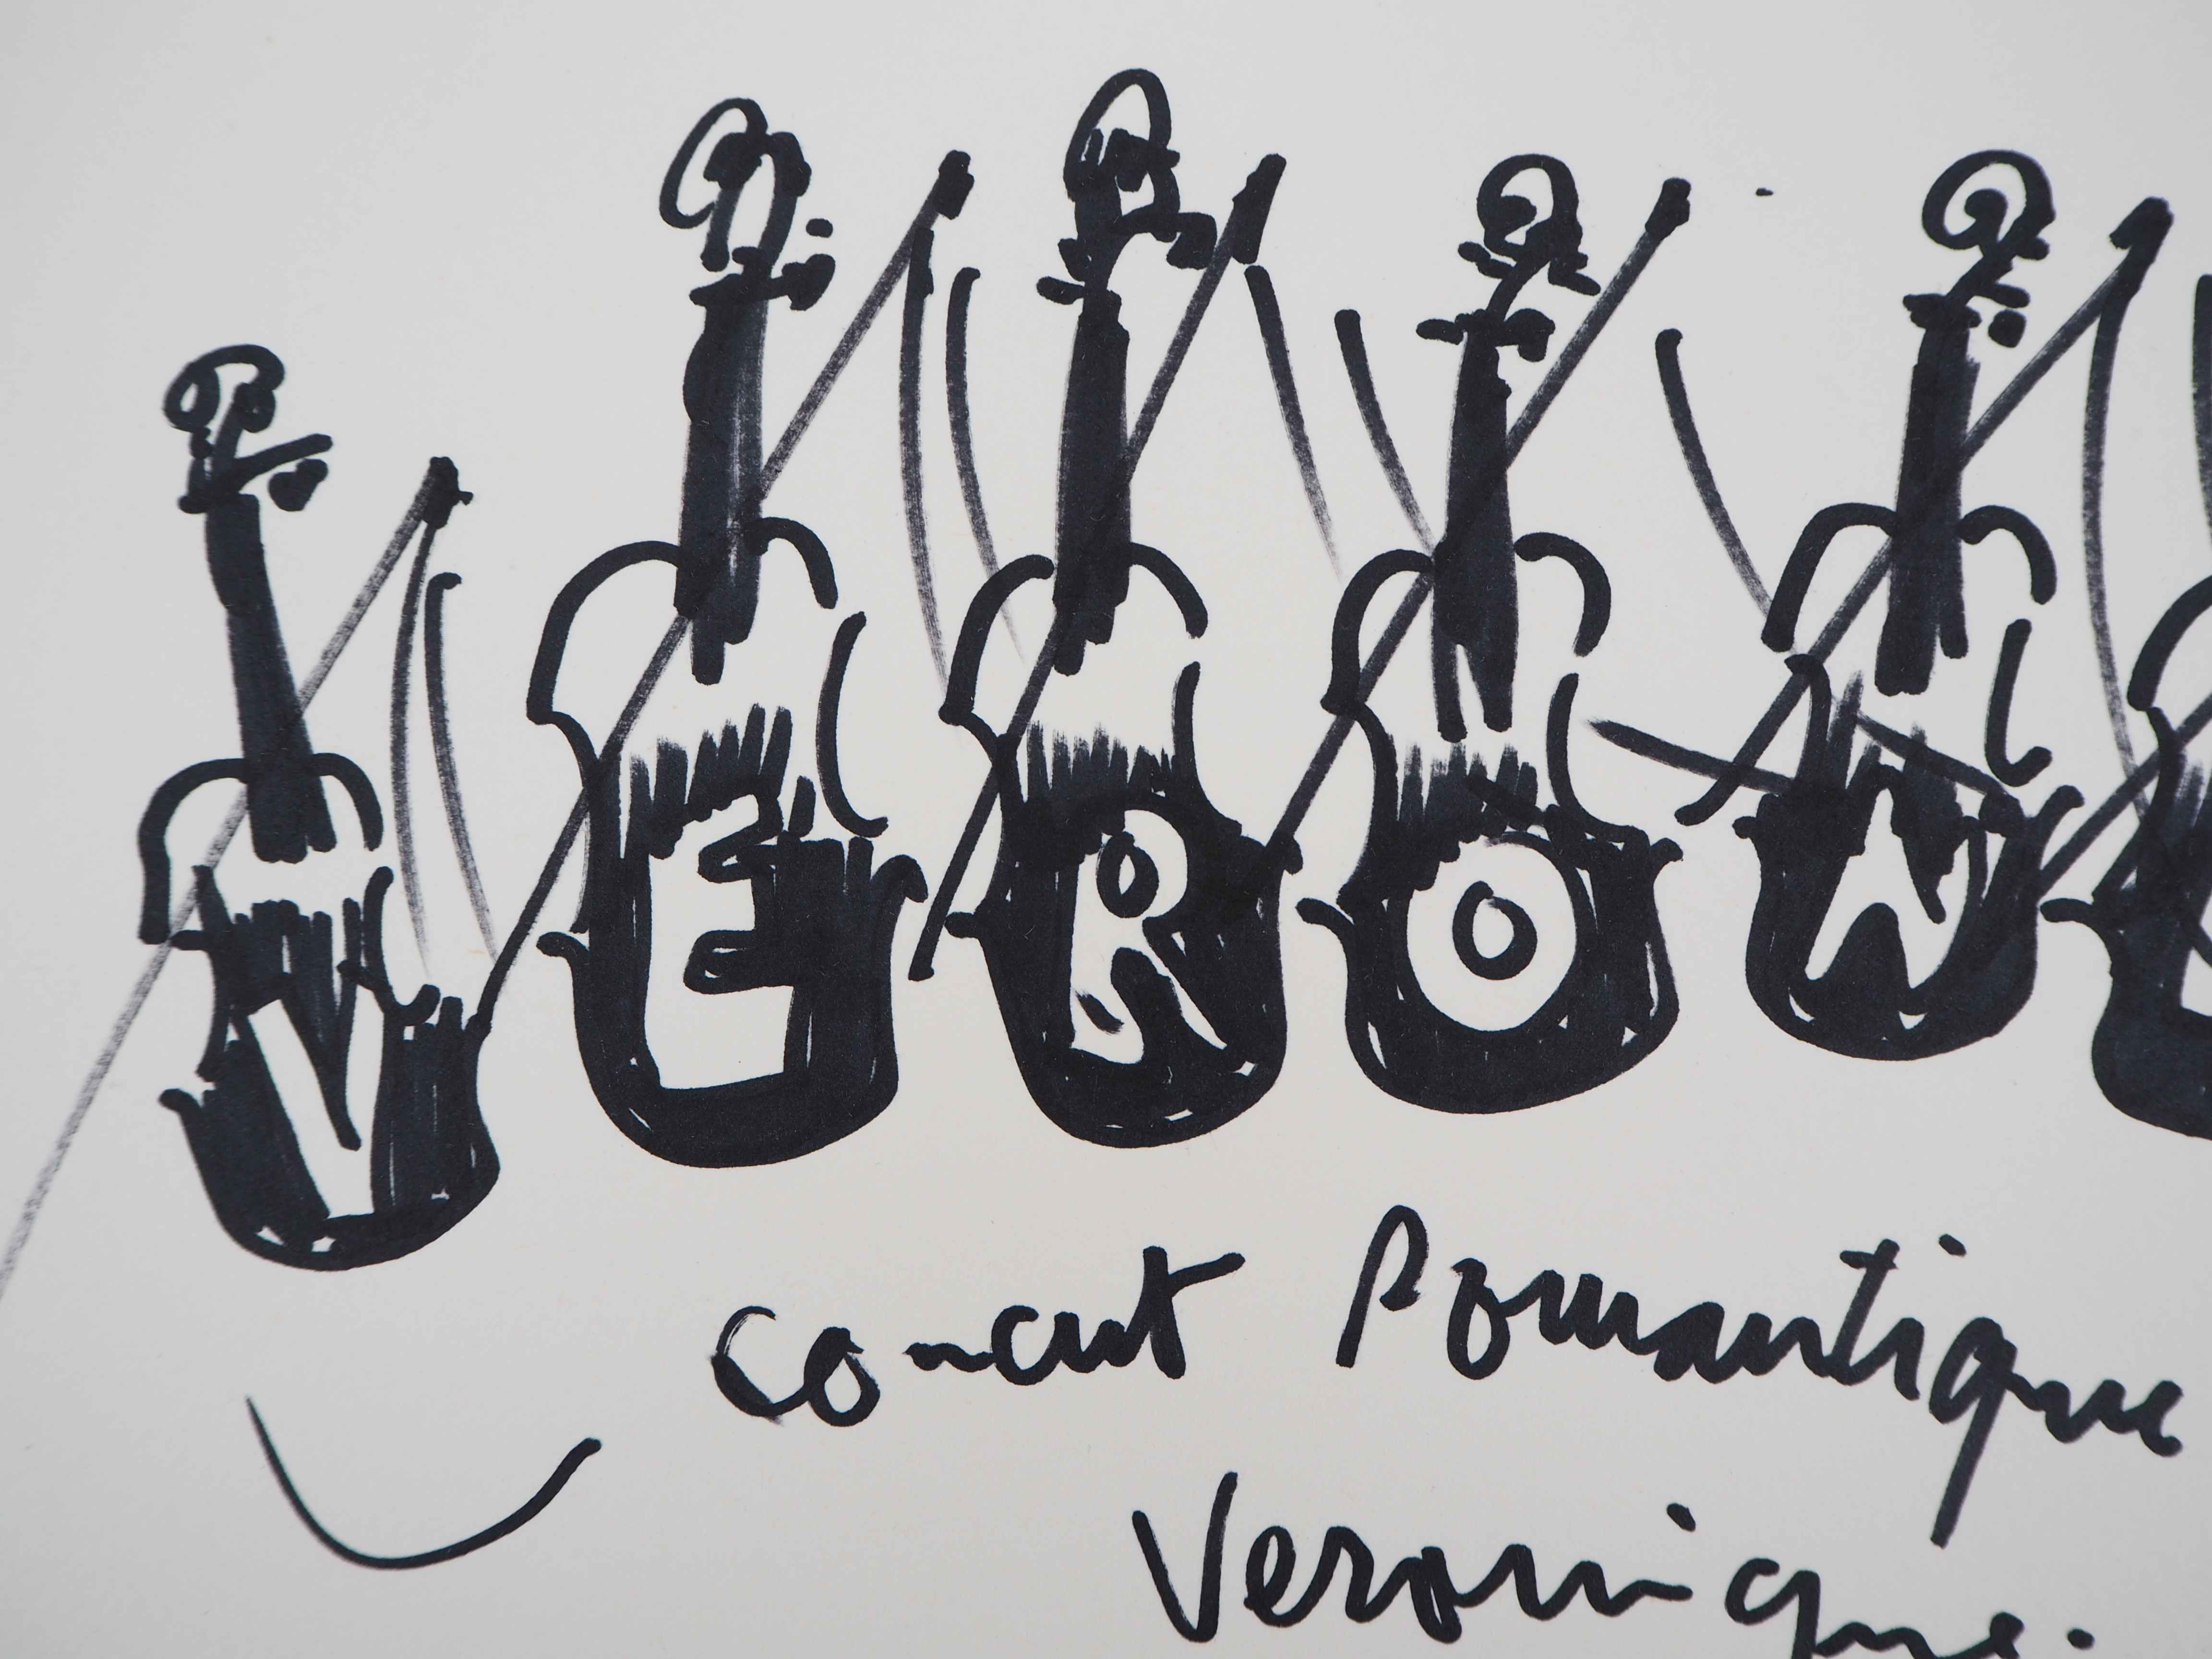 VERON
Concert Romantique
Veronique.